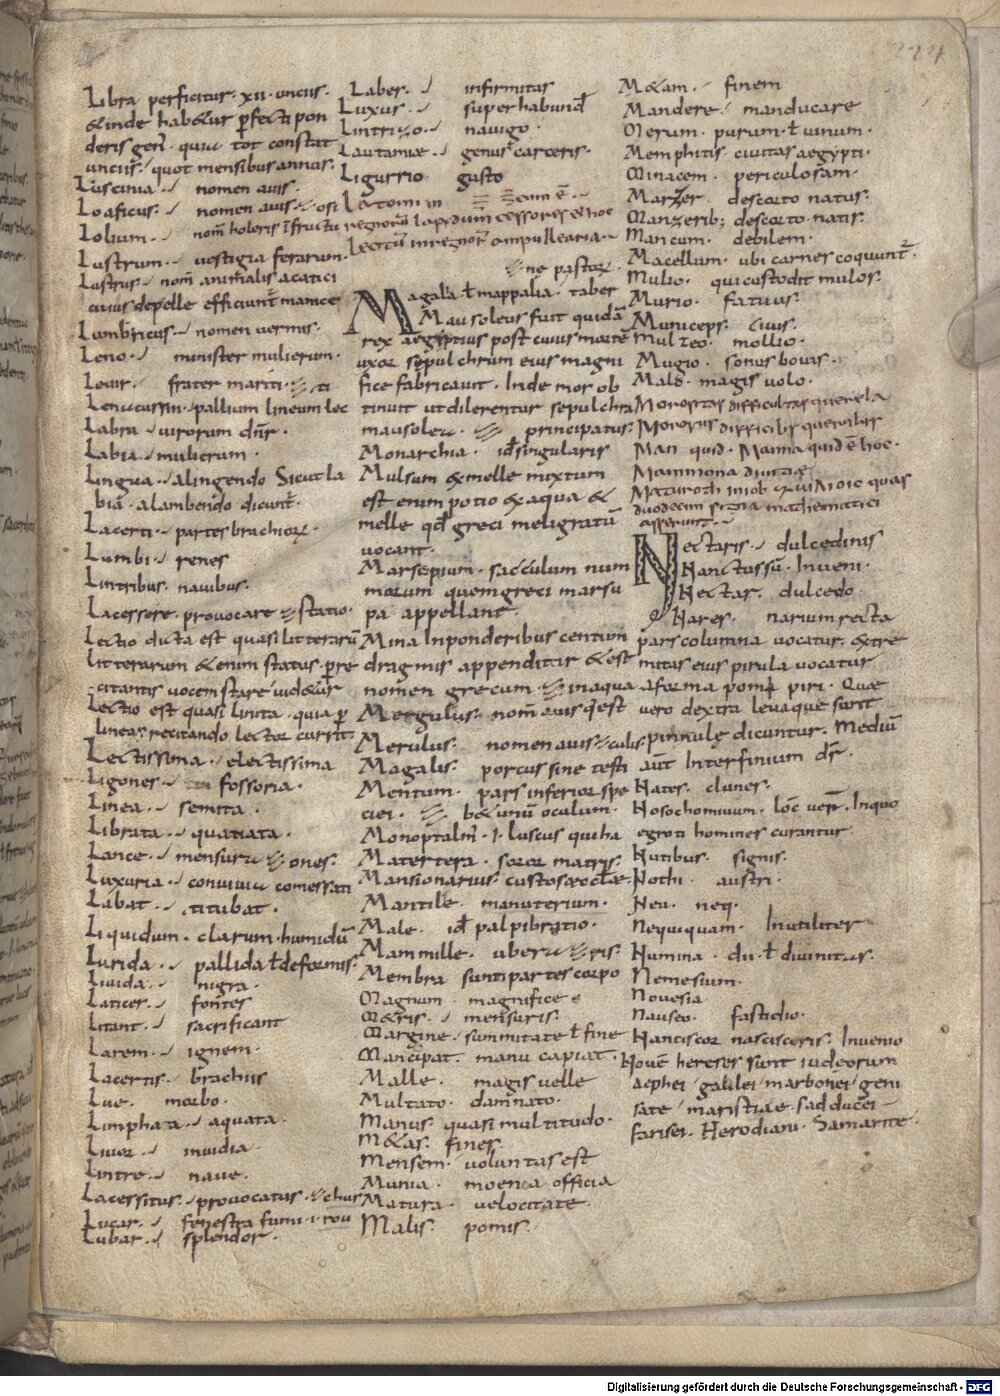 224
Libra perficitur · xii · uncus.
&inde hab&ur ꝑfecta pon
deris gen̄ · quia tot constat
uncus · quot mensibus annus.
Luscinia · nomen auis ·
Loaficus · nomen auis ·
Lolium · nom̄ holeris ł fructu
Lustrum · uestigia ferarum
Lustrus · nom̄ animalis acatici
cuius depelle efficiunt manice
Lumbricus · nomen uermis ·
Leno · minister mulierum ·
Leuir · frater mariti · ti
Lenucussin · pallium lineum lec
Labra · uirorum dn̄r ·
Labia · mulierum ·
Lingua · alingendo Sicut la
bia · alambendo dicunt̄ ·
Lacerti · partes brachioꝝ ·
Lumbi · renes
Lintribus · nauibus ·
Lacessere · provocare statio ·
Lectio dicta est quasi litterarū
litterarum &enim status · ꝑre
citantis uocem stare uid&ur
Lectio est quasi linita · quia ꝑ
lineas recitando lector currit
Lectissima · electissima
Ligones · fossoria ·
Linea · semita ·
Librata · quatiata ·
Lance · mensura ones ·
Luxuria · conuiuia comessati
Labat · titubat ·
Liquidum · clarum · humidū
Lurida · pallida ł deformis ·
Liuida · nigra ·
Latices · fontes
Litant · sacrificant
Larem · ignem ·
Lacertis · brachiis
Lue · morbo ·
Limphata · aquata ·
Liuor · inuidia ·
Lintre · naue ·
Lacessitus · provocatus · chus
Lucar · fenestra fumi · i · rou
Lubar · splendor ·
Laber · infirmitas
Luxus · superhabund̄
Lintrizo · nauigo ·
Lautamiae · genus carceris ·
Ligurrio gusto
regnorū lapidum cessores & hoc
ne pastoꝝ ·
Magalia ł mappalia · taber
Mausoleus fuit quidā
rex aegyptius post cuius mortē
uxor sepulchrum eius magni
fice fabricauit · Inde mor ob
tinuit ut dilerentur sepulchra
mausolea · principatus ·
Monarchia · id̄ singularis
Mulsum &melle mixtum
est enim potio &aqua &
melle qd̄ greci meligratū
uocant ·
Marsepium · sacculum num
morum quem greci marsu
pa appellant ·
Mina Inponderibus centum
dragmis appenditur &est
nomen grecum · inaqua
Mergulus · nom̄ auis q̄est
Merulus · nomen auis culis
Magalis · porcus sine testi
Mentum · pars inferior spe
ciei · b& unū oculum ·
Monoptalm̄ · i · luscus qui ha
Matertera · soror matris ·
Mansionarius · custos aecclae
Mantile · manuterium ·
Male · id̄ palpibratio ·
Mammille · ubera ris ·
Membra sunt partes corpo
Magnum · magnifice
M&ris · mensuris ·
Margine · summitate ł fine
Mancipat · manu capiat ·
Malle · magis uelle
Multato · damnato ·
Manus · quasi multitudo ·
M&as · fines ·
Mensem · uoluntas est
Munia · moenia officia
Matura · uelocitate ·
Malis · pomis ·
M&am · finem
Mandere · manducare
Merum · purum · ł uinum ·
Memphitis · ciuitas aegypti ·
Minacem · periculosam ·
Marzer · descorto natus ·
Manzerib; descorto · natis ·
Mancum · debilem ·
Macellum · ubi carnes coquunt̄ ·
Mulio · qui custodit mulos ·
Murio · fatuus ·
Municeps · ciuis ·
Mulzeo · mollio ·
Mugio · sonus bouis ·
Malo · magis uolo ·
Morositas difficultas querela
Morosus difficilis querulus
Man quid · Manna quid ē hoc ·
Mammona diuitiae
Maturoth iniob quas
duodecim signa mathematici
asserunt ·
Nectaris · dulcedinis
Nanctussū · Inueni ·
Nectar · dulcedo ·
Nares · narium recta
pars columna vocatur · &extre
mitas eius pirula vocatur
aforma pomi piri · Quae
vero dextra leuaque sunt
pinnulę dicuntur · Mediū
aūt Interfinium dr̄ ·
Nates · clunes ·
Nosochomium · loc̄ uen̄ · Inquo
egroti homines curantur ·
Nutibus · signis ·
Nothi · austri ·
Neu · neq ·
Nequiquam · Inutiliter
Numina · dii · ł diuinitas ·
Nemesium ·
Nouesia
Nauseo · fastidio ·
Nanciscor nascisceris · Inuenio
Nouē hereses sunt iudeorum
aephei · galilei · marbonei · geni
sate · maristiae · sadducei
farisei · Herodiani · Samarite ·
Digitalisierung gefördert durch die Deutsche Forschungsgemeinschaft - DFG